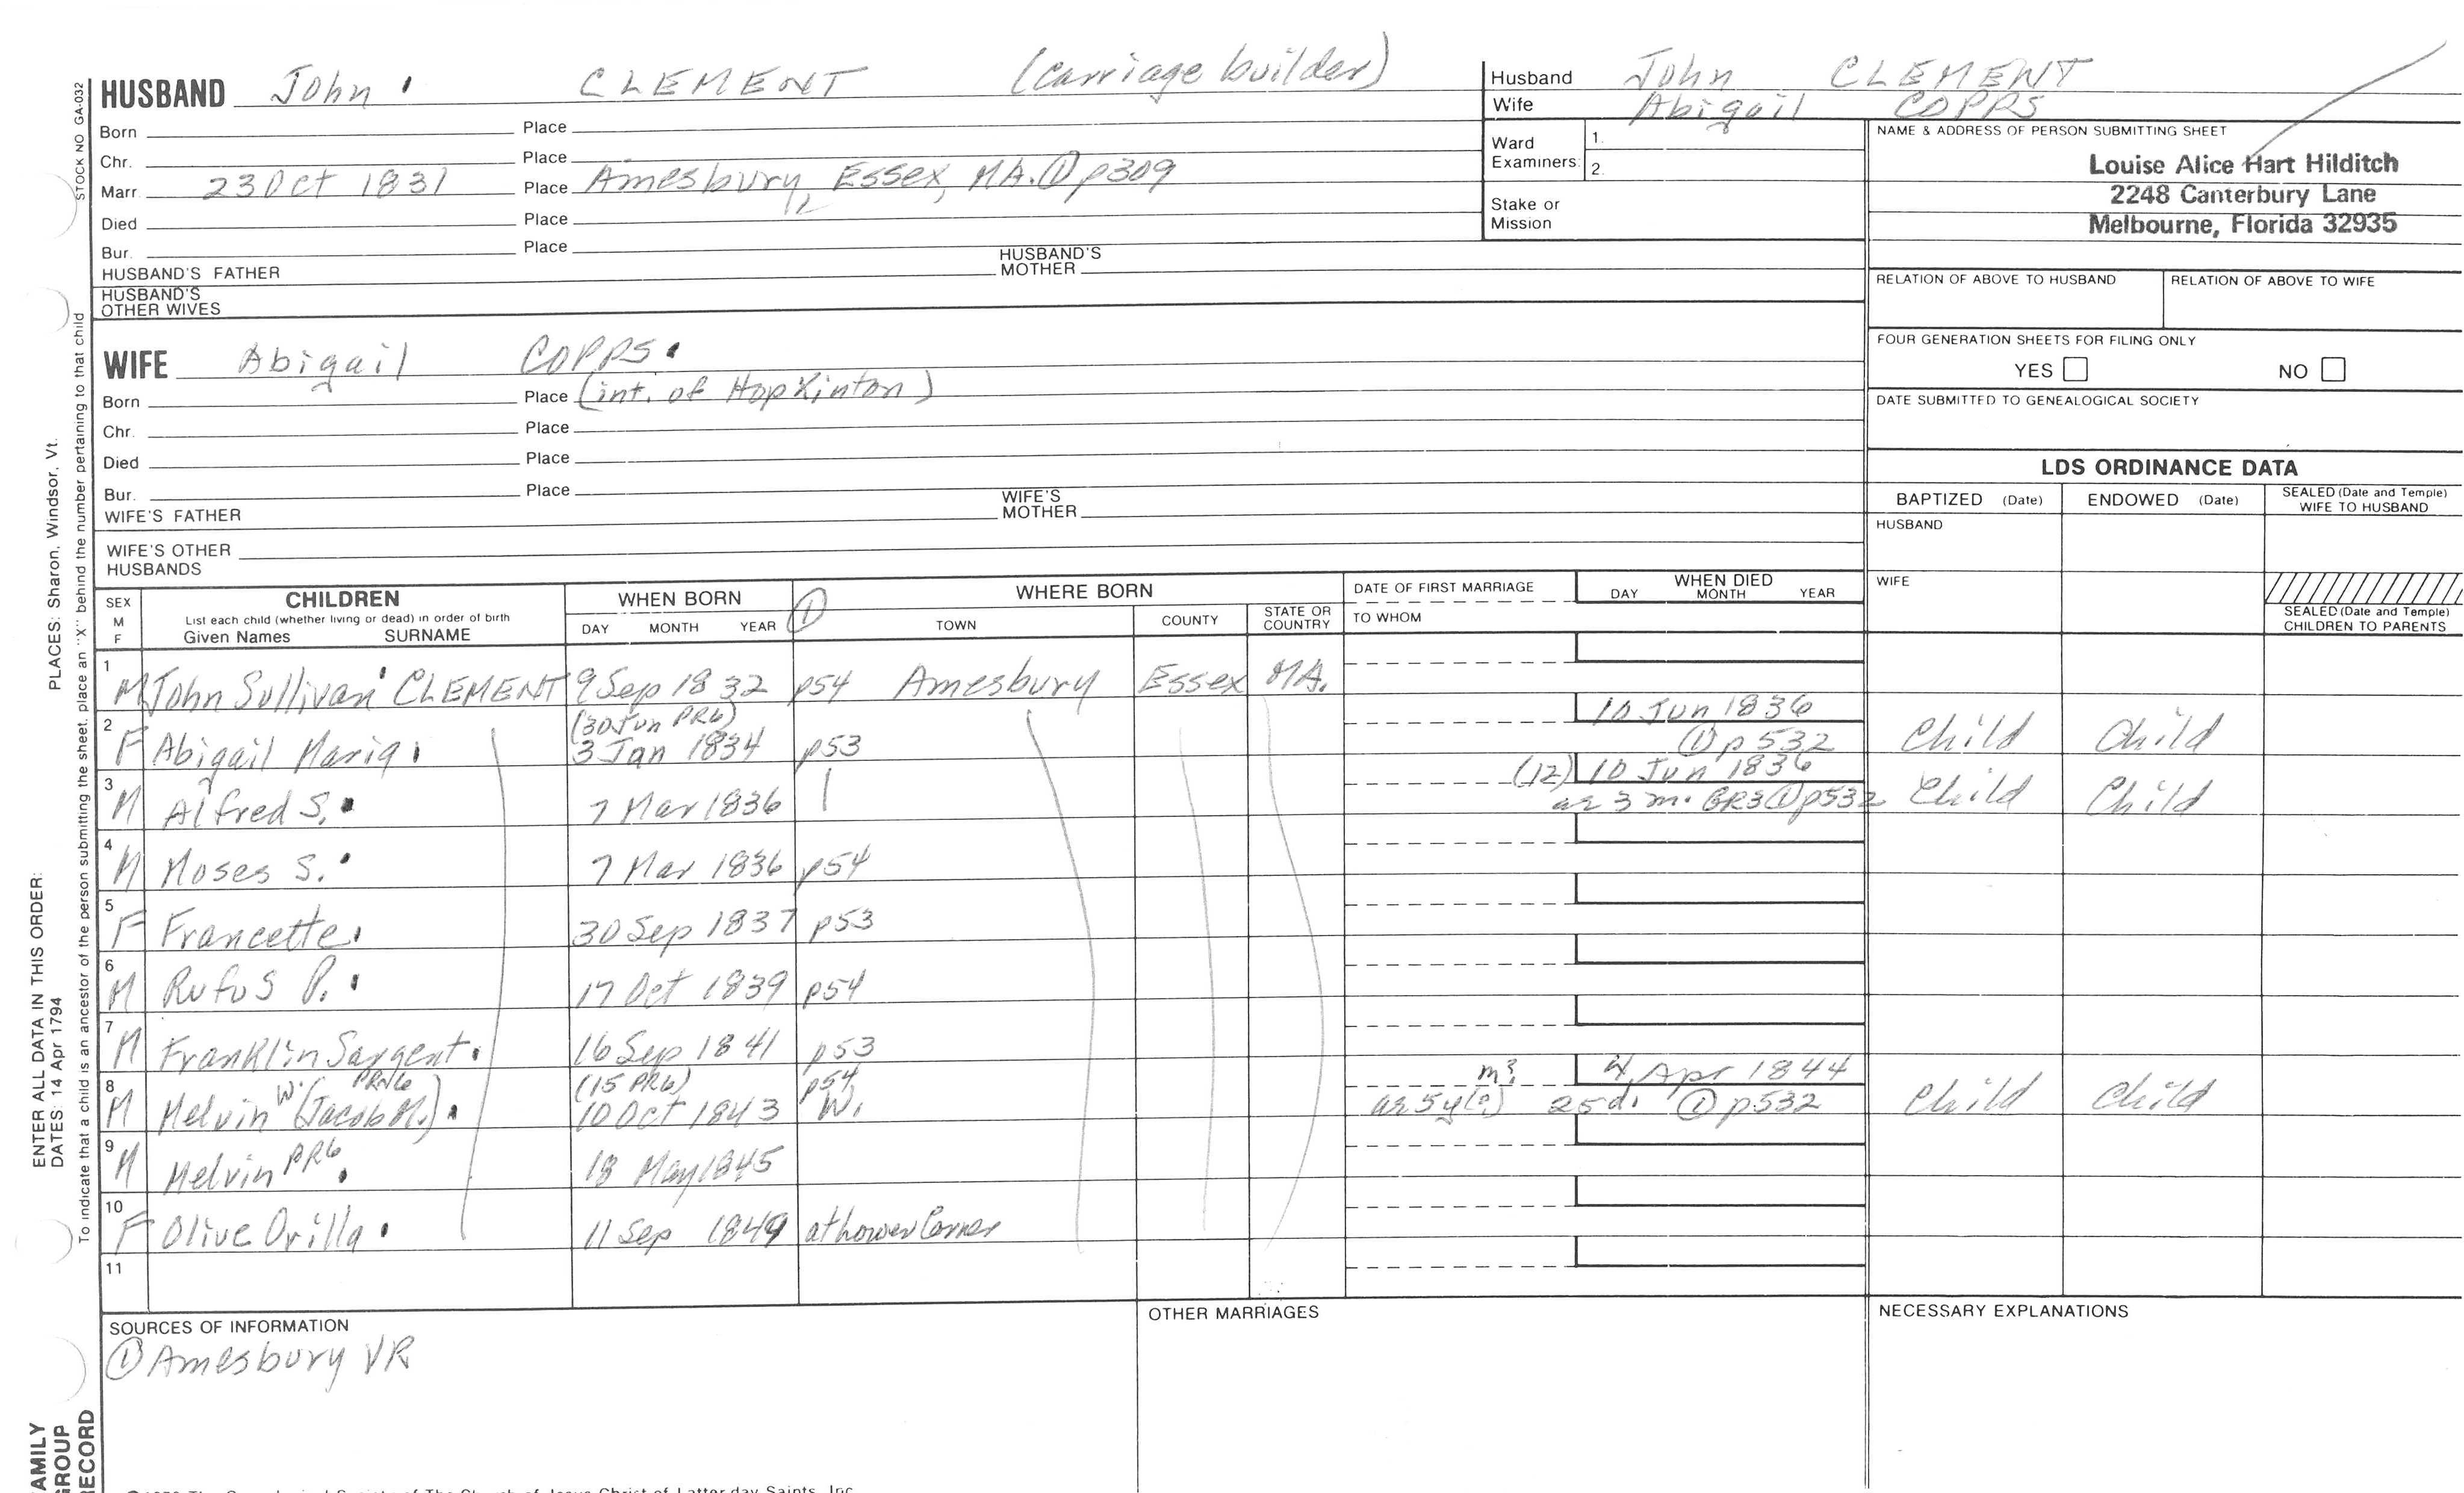 HUSBAND John CLEMENT (carriage builder)
Born Place
Chr. Place
Marr. 23 Oct 1831 Place Amesbury, Essex, MA. ① p309
Died Place
Bur. Place
HUSBAND'S FATHER HUSBAND'S MOTHER
HUSBAND'S OTHER WIVES
WIFE Abigail COPPS.
Born Place (int. of Hopkinton)
Chr. Place
Died Place
Bur. Place
WIFE'S FATHER WIFE'S MOTHER
WIFE'S OTHER HUSBANDS
Husband John CLEMENT
Wife Abigail COPPS
Ward Examiners: 1.
2.
Stake or Mission
NAME & ADDRESS OF PERSON SUBMITTING SHEET
Louise Alice Hart Hilditch
2248 Canterbury Lane
Melbourne, Florida 32935
RELATION OF ABOVE TO HUSBAND RELATION OF ABOVE TO WIFE
FOUR GENERATION SHEETS FOR FILING ONLY
YES NO
DATE SUBMITTED TO GENEALOGICAL SOCIETY
LDS ORDINANCE DATA
BAPTIZED (Date) ENDOWED (Date) SEALED (Date and Temple) WIFE TO HUSBAND
HUSBAND
WIFE
SEALED (Date and Temple) CHILDREN TO PARENTS
SEX M F
CHILDREN
List each child (whether living or dead) in order of birth
Given Names SURNAME
WHEN BORN
DAY MONTH YEAR
①
WHERE BORN
TOWN COUNTY STATE OR COUNTRY
DATE OF FIRST MARRIAGE
TO WHOM
WHEN DIED
DAY MONTH YEAR
1 M John Sullivan CLEMENT 9 Sep 1832 p54 Amesbury Essex MA.
2 F Abigail Maria. (30 Jun PR6) 3 Jan 1834 p53 10 Jun 1836 ① p532 Child Child
3 M Alfred S. 7 Mar 1836 (12) 10 Jun 1836 ae 3 m. GR3 ① p532 Child Child
4 M Moses S. 7 Mar 1836 p54
5 F Francette. 30 Sep 1837 p53
6 M Rufus P. 17 Oct 1839 p54
7 M Franklin Sargent. 16 Sep 1841 p53
8 M Melvin W. (Jacob M. PR6). (15 PR6) 10 Oct 1843 p54 W. m? 4 Apr 1844 ae 5y(?) 25d. ① p532 Child Child
9 M Melvin PR6. 18 May 1845
10 F Olive Orilla. 11 Sep 1849 at Lower Corner
11
SOURCES OF INFORMATION
① Amesbury VR
OTHER MARRIAGES
NECESSARY EXPLANATIONS
STOCK NO GA-032
To indicate that a child is an ancestor of the person submitting the sheet, place an "X" behind the number pertaining to that child
PLACES: Sharon, Windsor, Vt.
ENTER ALL DATA IN THIS ORDER:
DATES: 14 Apr 1794
AMILY
GROUP
RECORD
The Church of Jesus Christ of Latter-day Saints, Inc.